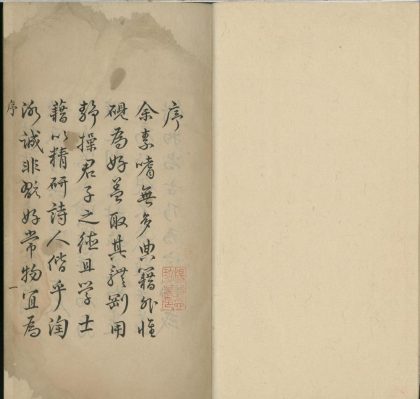 序
余素嗜無多典籍外惟
硯為好蓋取其體剛用
靜操君子之德且学士
藉以精研詩人偕乎淘
泳誠非癖好常物宜為
序
一